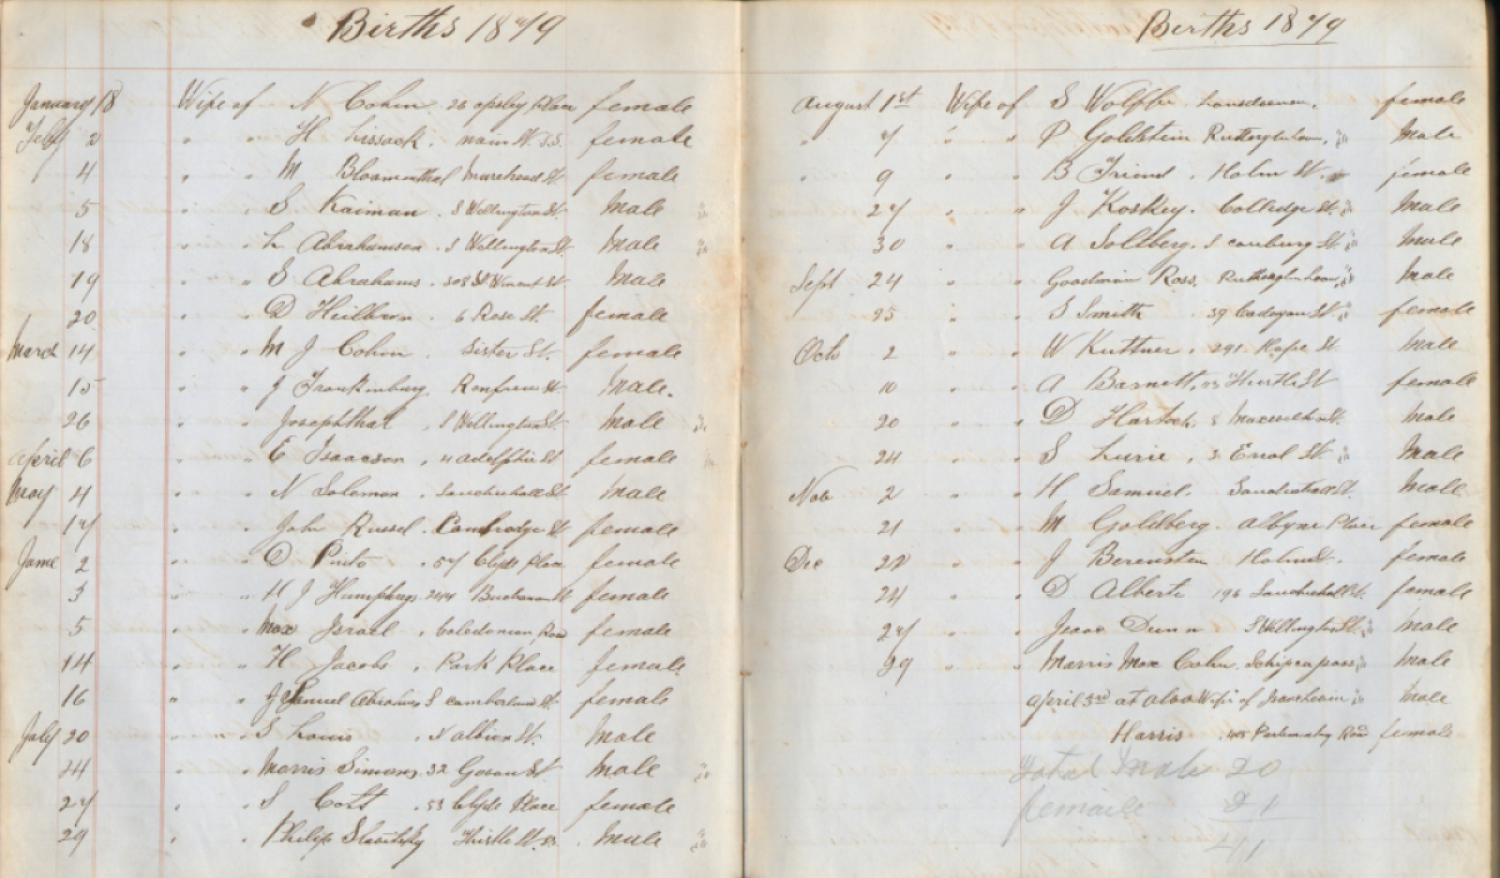 Births 1879
January 18 Wife of N Cohen 26 apsley Place female
Feby 2 " " H Lissack . main St. S.S. female
4 " " M Bloomenthal Muirhead St female
5 " " S Kaiman . S Wellington St. Male
18 " " L Abrahamson . S Wellington St. Male
19 " " S Abrahams . 308 St Vincent St Male
20 " " D Heilbron . 6 Rose St. female
March 14 " " M J Cohen . Sister St. female
15 " " J Frankinburg. Renfrew St. Male.
26 " " Josephthal . S Wellington St. Male
April 6 " " E Isaacson . 11 adelphi St female
May 4 " " N Solomon . Sauchiehall St. Male
17 " " John Russel . Cambridge St female
June 2 " " D Pinto . 57 Clyde Place female
3 " " H J Humphreys 244 Buchanan St female
5 " " Max Israel . Caledonian Road female
14 " " H Jacobs . Park Place female.
16 " " Samuel Abrahams S cumberland St. female
July 20 " " S Louis . N albion St. Male
24 " " Morris Simons 32 Govan St. Male
27 " " S Coft . 53 Clyde Place female
29 " " Philip Thistle St. S.S. . Male
Births 1879
August 1st Wife of S Wolffe . Lansdowne . female
" 7 " " P Goldstein Rutherglen Loan . Male
" 9 " " B Friend . Holm St. female
27 " " J Koskey . Colledge St. Male
30 " " A Soldberg . S Male
Sept 24 " " Goodman Ross. Rutherglen Loan Male
25 " " S Smith . 39 Cadogan St. female
Oct 2 " " W Kuttner . 291 Hope St. Male
10 " " A Barnett, Thistle St female
20 " " D Hartog . S Maxwelton St. Male
24 " " S Lurie . 3 Errol St. Male
Nov 2 " " H Samuel . Sauchiehall St. Male
21 " " M Goldberg . albyne Place female
Dec 22 " " J Berenstein Holm St. female
24 " " D Alberts 196 Sauchiehall St. female
27 " " Isaac Dunn S Wellington St. Male
29 " " Morris Max Cohen . Schipca pass Male
April 3rd at aloa Wife of Male
Harris . Parliamentary Road female
Total Male 20
female 21
41